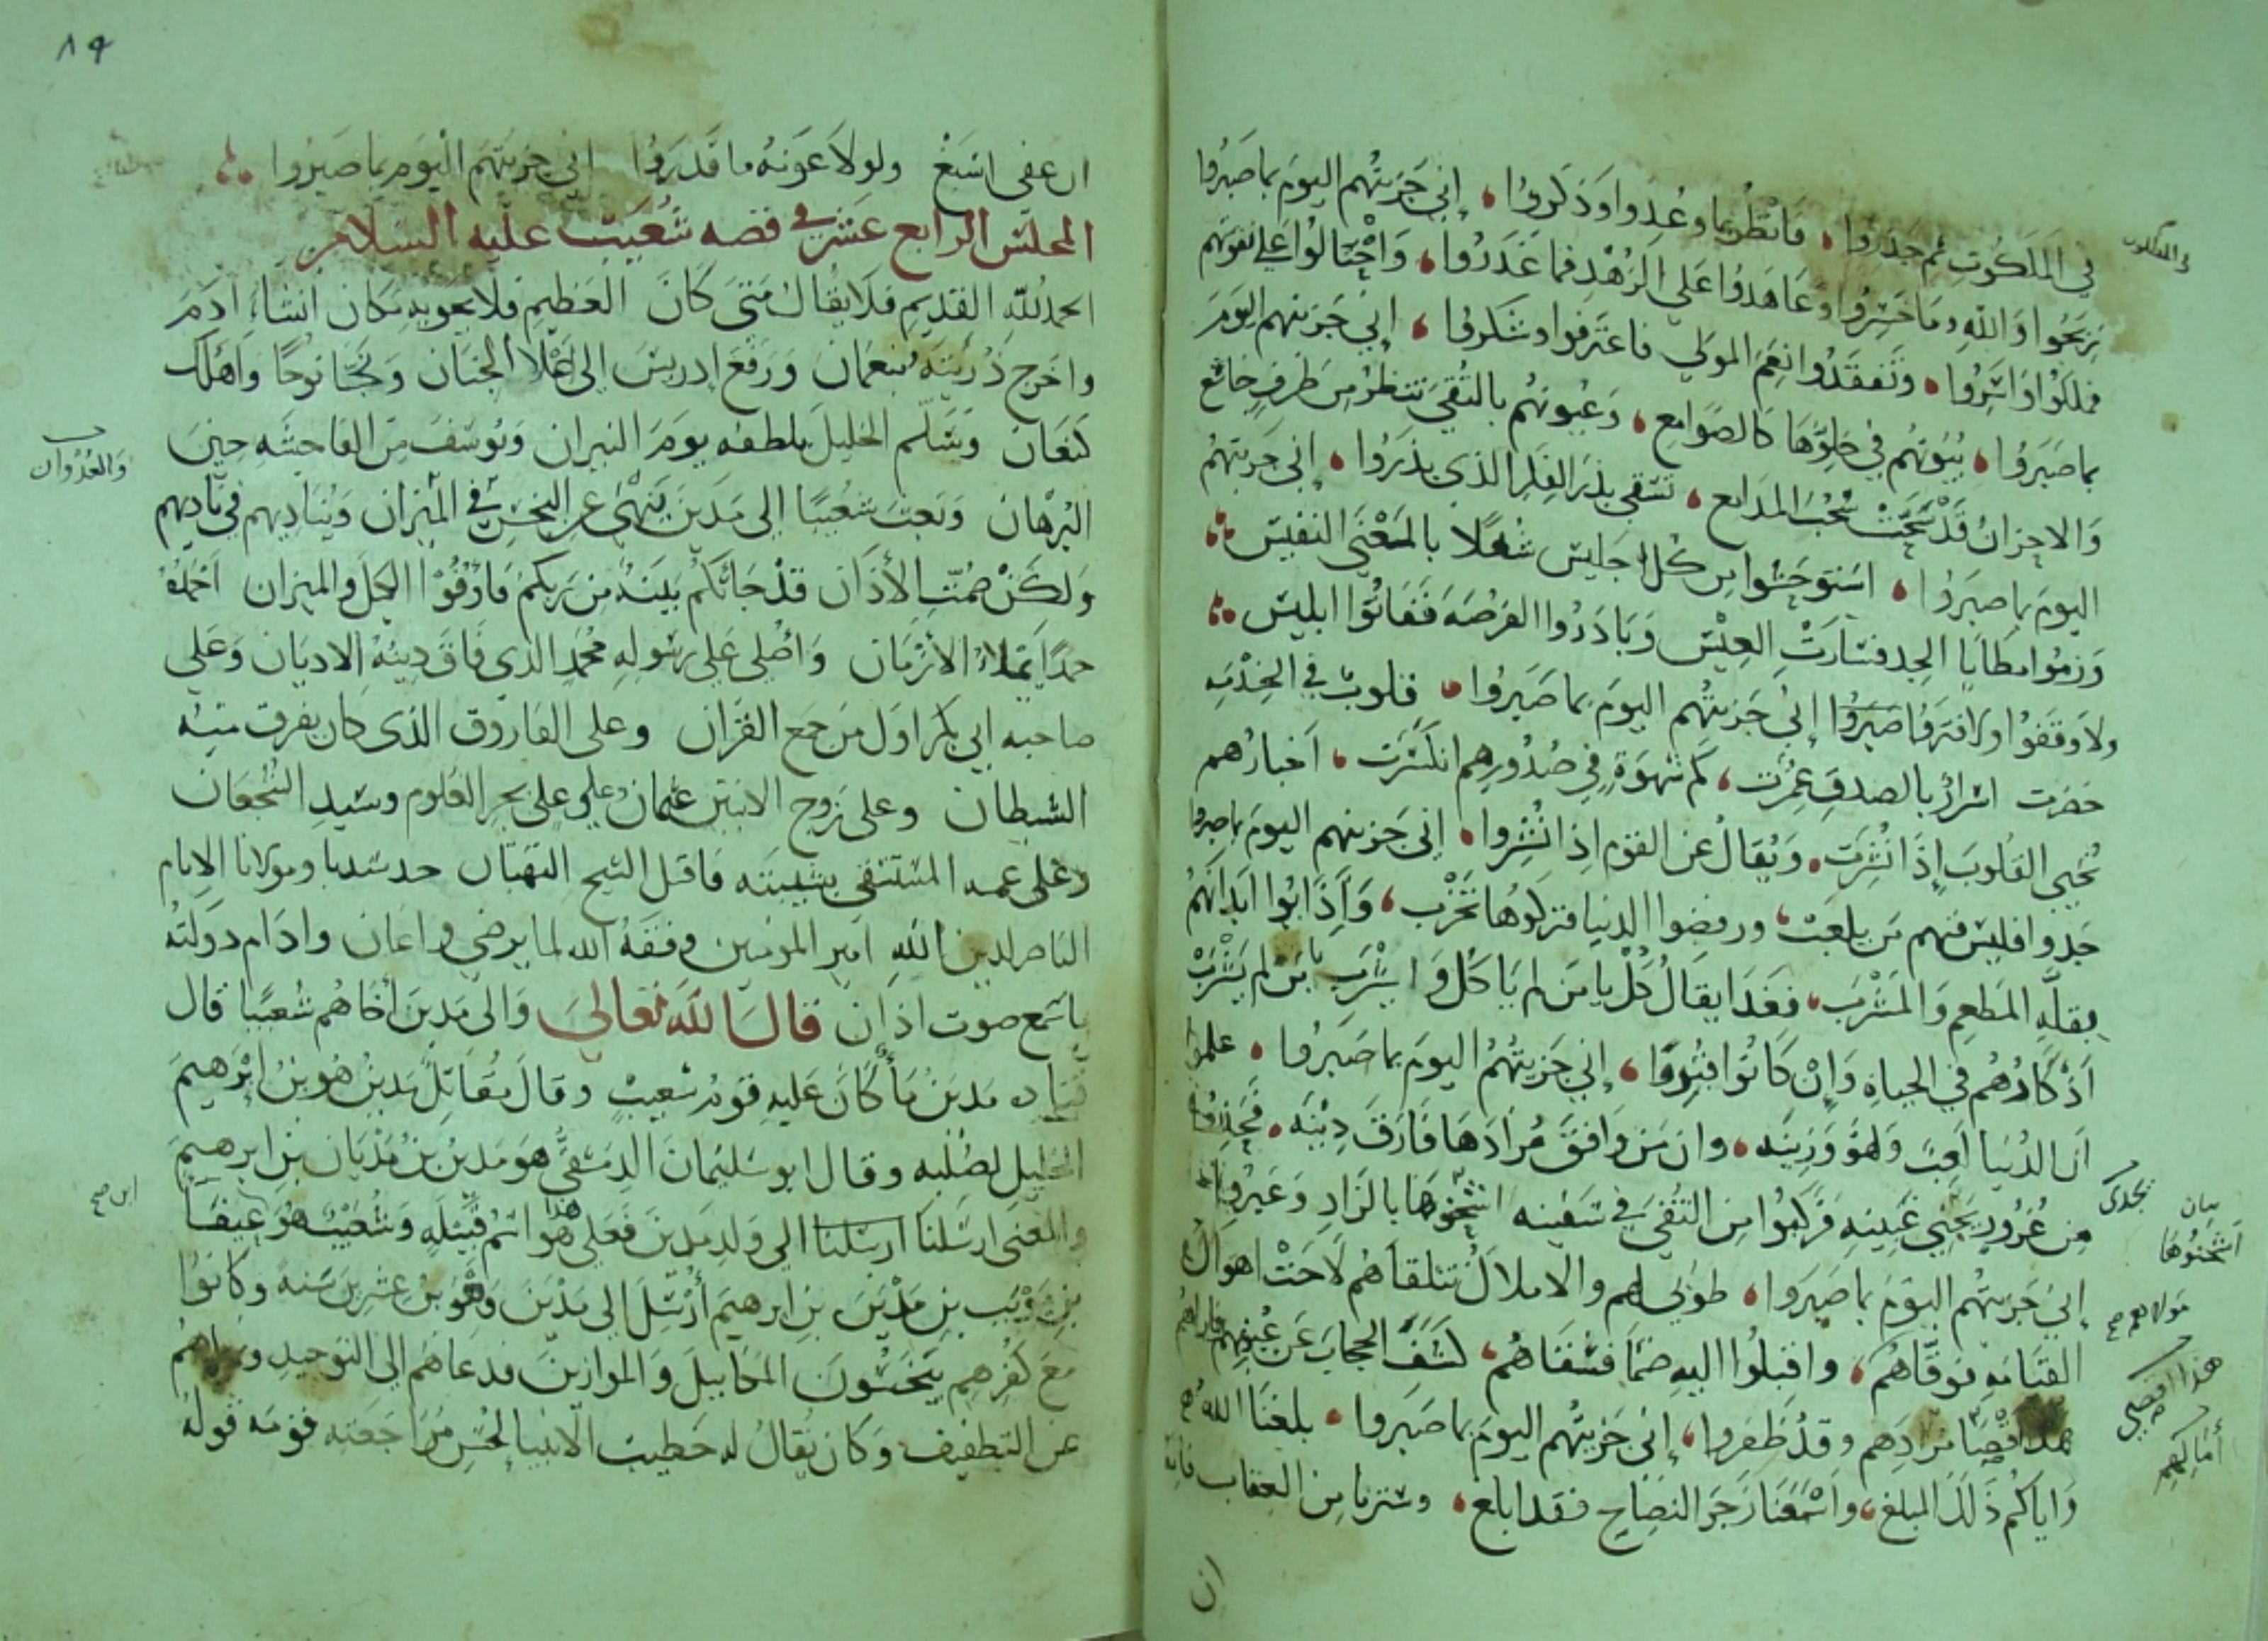 في الملكوت ثم حذروا، فانتظر بما وعدوا وذكروا، إني جزيتهم اليوم بما صبروا
ربحوا والله وما خسروا وعاهدوا على الزهد فما غدروا، واحتالوا على نفوسهم
فملكوا واسروا، وتفقدوا نعم المولى فاعترفوا وشكروا، إني جزيتهم اليوم
بما صبروا، بيوتهم في خلوها كالصوامع، وعيونهم بالتقى تنظر من طرف خاشع
والاحزان قد سحت سحب المدامع، تسقى بذر الفكر الذي بذروا، إني جزيتهم
اليوم بما صبروا، استوحشوا من كل جليس شغلا بالمعنى النفيس
وزموا مطايا الجد فسارت العيس وبادروا الفرصة ففاتوا ابليس
ولا وقفوا ولا فتروا إني جزيتهم اليوم بما صبروا، قلوب في الخدمه
حضرت اسرار بالصدق عمرت، كم شهوة في صدورهم انكسرت، اخبارهم
تحيي القلوب إذا نشرت، ويقال عن القوم اذا نشروا، إني جزيتهم اليوم بما صبروا
جدوا فليس فيهم من يلعب، ورفضوا الدنيا فتركوها تخرب، وأذابوا ابدانهم
بقلة المطعم والمشرب، فغدا يقال كل يا من لم ياكل واشرب يا من لم يشرب
اذكارهم في الحياة وإن كانوا قبروا، إني جزيتهم اليوم بما صبروا، علموا
ان الدنيا لعب ولهو وزينه، وان من وافق مرادها فارق دينه، فحذروا
من غرور يجني غبينه فركبوا من التقى في سفينه اشحنوها بالزاد وعبروا
إني جزيتهم اليوم بما صبروا، طوبى لهم والاملاك تتلقاهم لاحت اهوال
القيامه فوقاهم، واقبلوا اليه ضما فسقاهم، كشف الحجاب عن عيونهم فاراهم
هذا اقصى مرادهم وقد ظفروا، إني جزيتهم اليوم بما صبروا، بلغنا الله
واياكم ذلك المبلغ، واسمعنا زجر النصاح فقد ابلغ، وسترنا من العقاب فانه
ان
والفلك
بيان
اشحنوها
مولاهم صح
هذا اقصى
أمالهم
٨٩
ان عفى اسبغ ولولا عونه ما قدروا إني جزيتهم اليوم بما صبروا
المجلس الرابع عشر في قصه شعيب عليه السلام
الحمد لله القديم فلا يقال متى كان العظيم فلا يحويه مكان انشاء ادم
واخرج ذريته بنعمان ورفع ادريس الى اعلا الجنان ونجا نوحا واهلك
كنعان وسلم الخليل بلطفه يوم النيران ويوسف من الفاحشه حين
البرهان وبعث شعيبا الى مدين ينهى عن البخس في الميزان ويناديهم في ناديهم
ولكن صمت الأذان قد جاتكم بينه من ربكم فاوفوا الكيل والميزان احمده
حمدا يملاء الأزمان وأصلي على رسوله محمد الذي فاق دينه الاديان وعلى
صاحبه ابي بكر اول من جمع القران وعلى الفاروق الذي كان يفرق منه
الشيطان وعلى زوج الابنتين عثمان وعلي على بحر العلوم وسيد الشجعان
وعلى عمه المستسقى بشيبته فاقبل السح التهتان جد سيدنا ومولانا الامام
الناصر لدين الله امير المومنين وفقه الله لما يرضي واعان وادام دولته
ما سمع صوت اذان قال الله تعالى والى مدين أخاهم شعيبا قال
قتاده مدين ما كان عليه قوم شعيب وقال مقاتل مدين هو بن ابرهيم
الخليل لصلبه وقال ابو سليمان الدمشقي هو مدين بن مديان بن ابرهيم
والمعنى ارسلنا ارسلنا الى ولد مدين فعلى هذا هو اسم قبيله وشعيب هو عيفا
بن نويب بن مدين بن ابرهيم أرسل الى مدين وهو بن عشرين سنه وكانوا
مع كفرهم يبخسون المكاييل والموازين فدعاهم الى التوحيد ونهاهم
عن التطفيف وكان يقال له خطيب الانبيا لحسن مراجعته قومه قوله
والعدوان
ابن صح